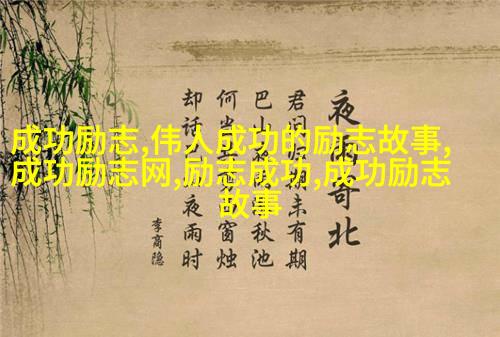 成功励志,伟人成功的励志故事,
成功励志网,励志成功,成功励志
故事
夜雨寄北
君问归期未有期
巴山夜雨秋池
何当窗烛
却话夜雨时
李商隐